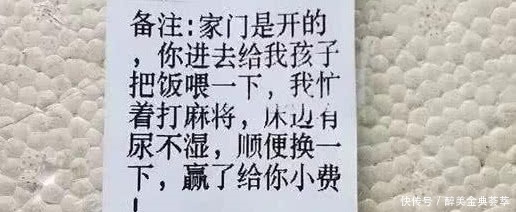 备注:家门是开的
,你进去给我孩子
把饭喂一下,我忙
着打麻将,床边有
尿不湿,顺便换一
下,赢了给你小费
!
快传号/醉美金典荟萃